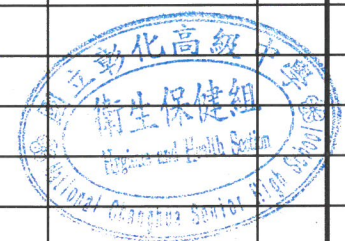 國立彰化高級中學
衛生保健組
Hygiene and Health Section
National Changhua Senior High School